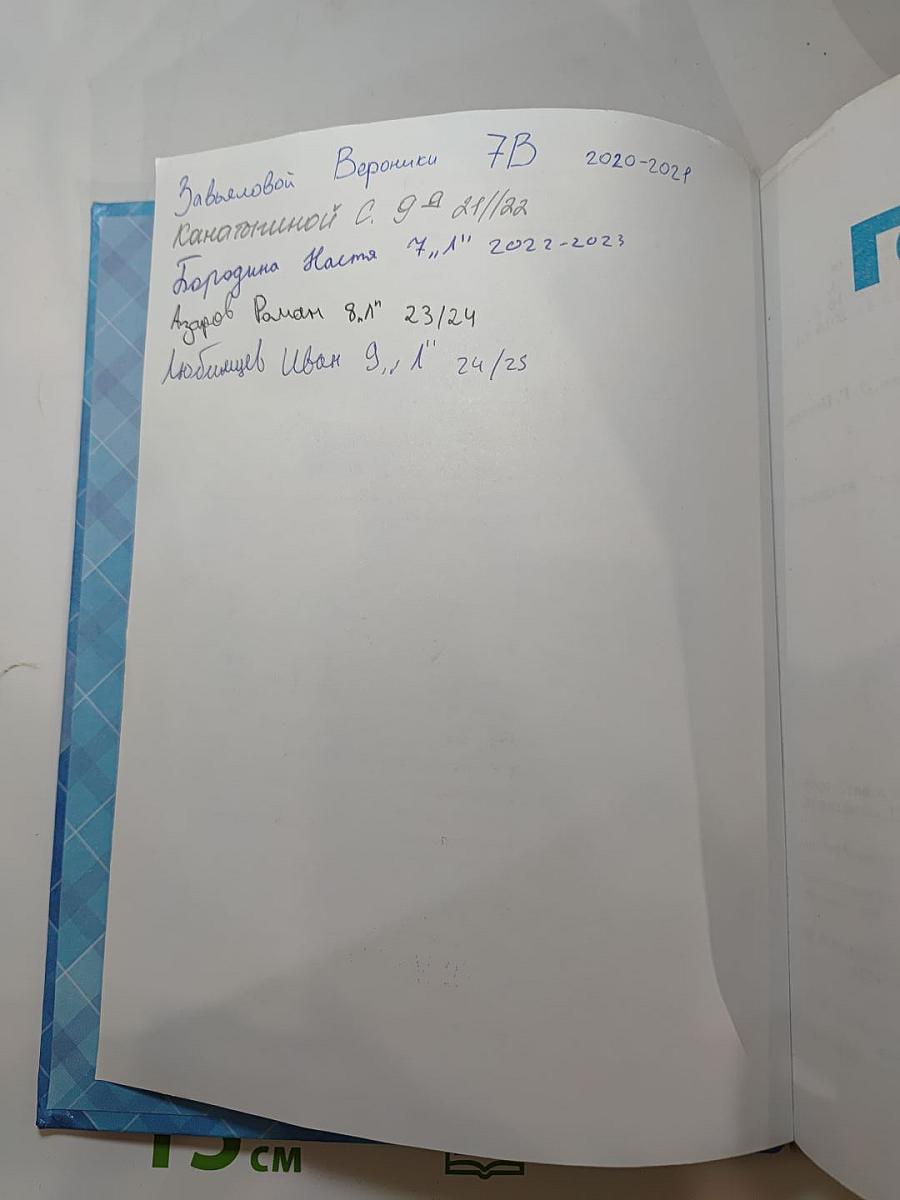 Завьяловой Вероники 7В 2020-2021
С. 9 21//22
Бородина Настя 7 „Л" 2022-2023
Азаров Роман 8„Л" 23/24
Любимцев Иван 9 „Л" 24/25
Г
15 см